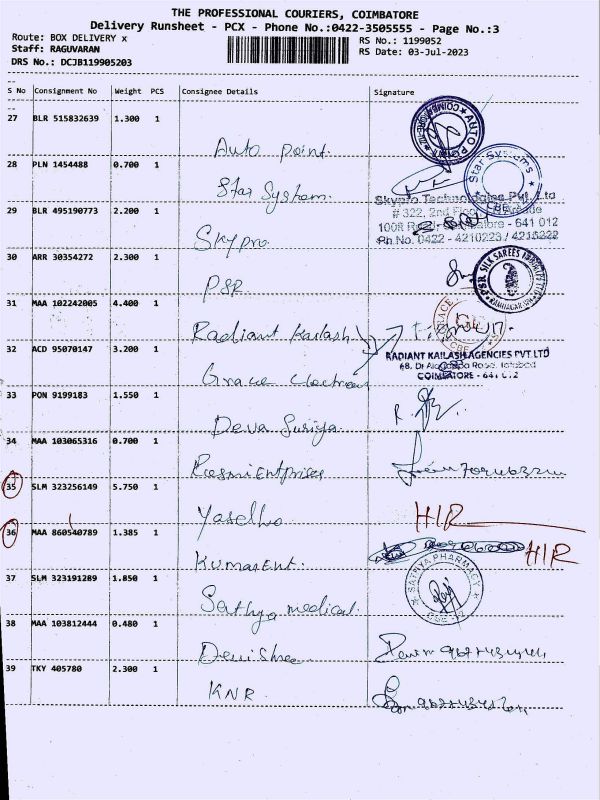 THE PROFESSIONAL COURIERS, COIMBATORE
Delivery Runsheet - PCX - Phone No.:0422-3505555 - Page No.:3
Route: BOX DELIVERY x
RS No.: 1199052
Staff: RAGUVARAN
RS Date: 03-Jul-2023
DRS No.: DCJB119905203
S No Consignment No Weight PCS Consignee Details Signature
27 BLR 515832639 1.300 1
Auto point
AUTO POINT
28 PLN 1454488 0.700 1
Star System
Star Systems
CBE
29 BLR 495190773 2.200 1
Skypro
Skypro Technologies Pvt. Ltd
# 322, 2nd Floor
641 012
Ph.No. 0422 - 4210223 / 4215222
30 ARR 30354272 2.300 1
PSR
PSR SILK SAREES
31 MAA 102242005 4.400 1
Radiant Kailash
32 ACD 95070147 3.200 1
Grace Electron
GRACE
CBE
RADIANT KAILASH AGENCIES PVT LTD
COIMBATORE - 641 012
33 PON 9199183 1.550 1
Deva Suriya
34 MAA 103065316 0.700 1
Rasmi Entprises
35 SLM 323256149 5.750 1
HIR
36 MAA 860540789 1.385 1
Kumar Ent.
HIR
37 SLM 323191289 1.850 1
Sathya medical
SATHYA PHARMACY
CBE-12
38 MAA 103812444 0.480 1
Devi Shree
39 TKY 405780 2.300 1
KNR